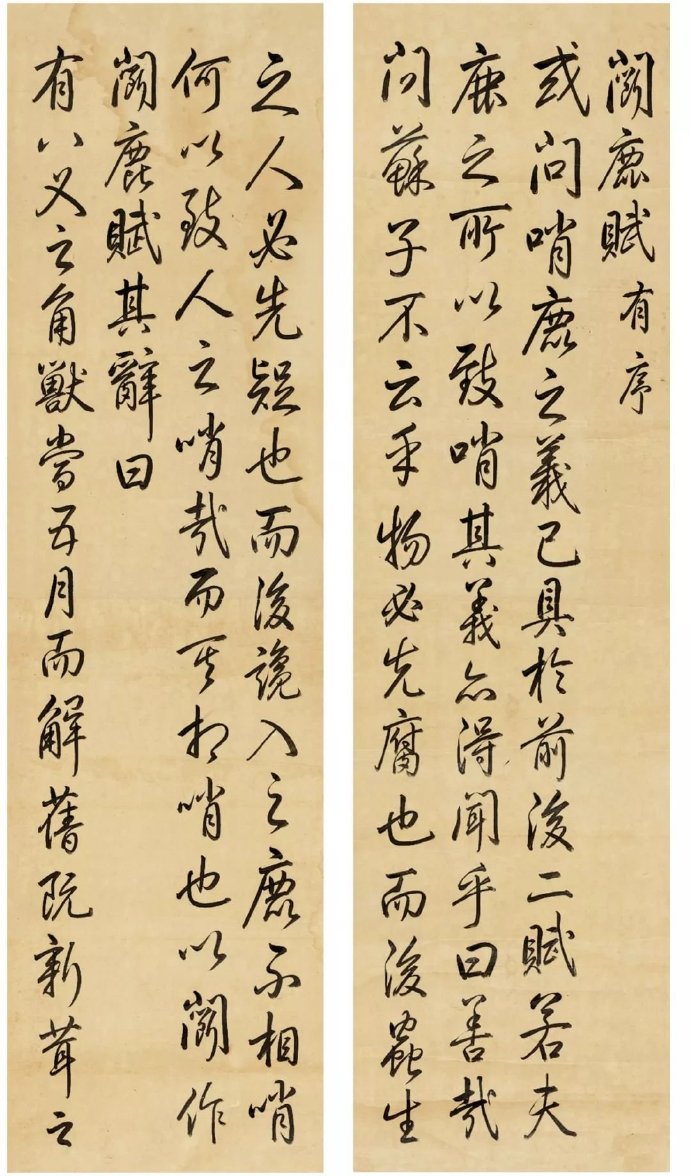 鬪鹿賦有序
或問哨鹿之義已具於前後二賦若夫
鹿之所以致哨其義亦得聞乎曰善哉
問蘇子不云乎物必先腐也而後蟲生
之人必先疑也而後讒入之鹿不相哨
何以致人之哨哉而其相哨也以鬪作
鬪鹿賦其辭曰
有八叉之角獸當五月而解舊既新茸之